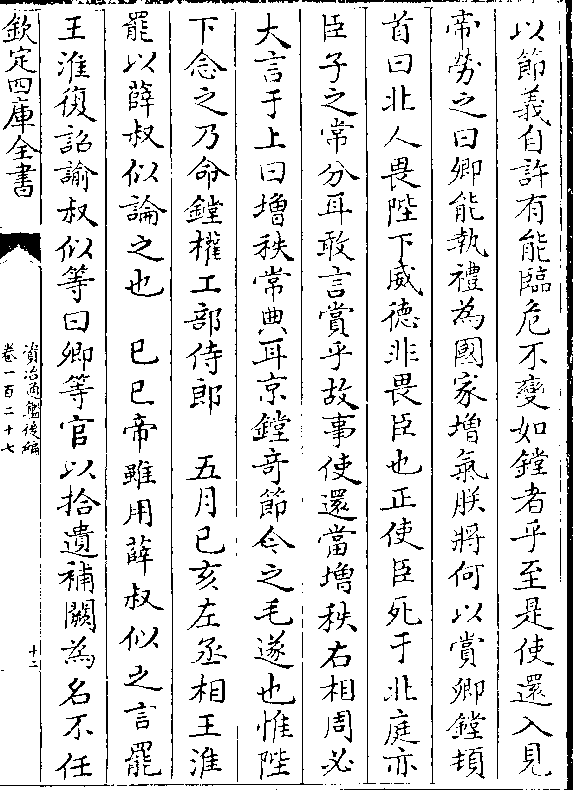 以節義自許有能臨危不變如鏜者乎至是使還入見
帝勞之曰卿能執禮為國家增氣朕將何以賞卿鏜頓
首曰北人畏陛下威德非畏臣也正使臣死于北庭亦
臣子之常分耳敢言賞乎故事使還當增秩右相周必
大言于上曰增秩常典耳京鏜奇節今之毛遂也惟陛
下念之乃命鏜權工部侍郎　五月己亥左丞相王淮
罷以薛叔似論之也　已巳帝雖用薛叔似之言罷
王淮復詔諭叔似等曰卿等官以拾遺補闕為名不任
欽定四庫全書
資治通鑑後編
卷一百二十七
十二